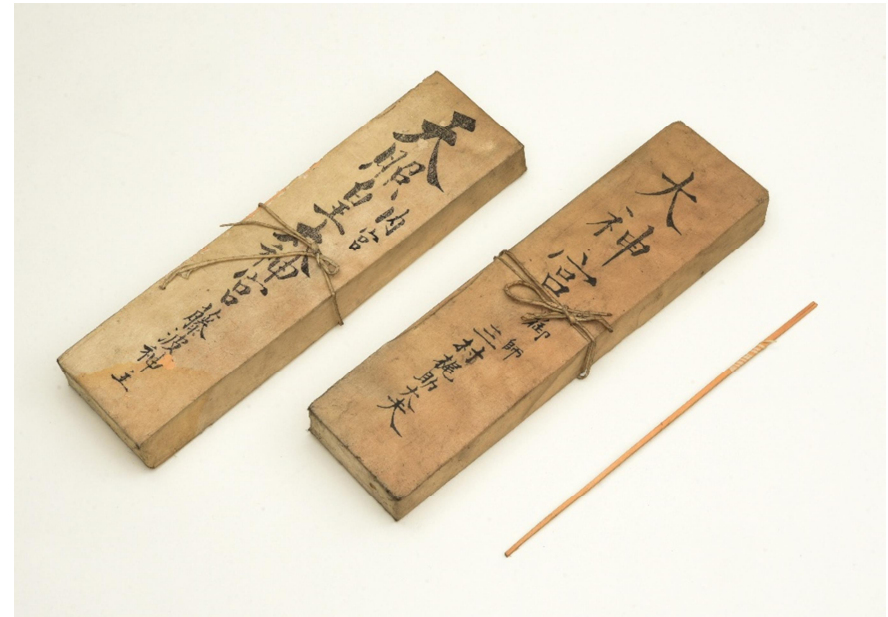 天照皇太神宮
内宮
藤波神主
大神宮
御師
三村梶助大夫